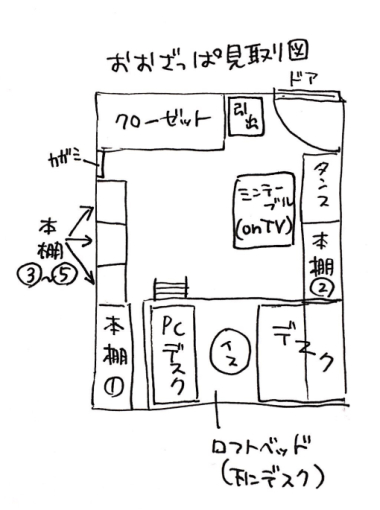 おおざっぱ見取り図
ドア
クローゼット
引出
カガミ
タンス
ミニテー
ブル
(onTV)
本棚
③~⑤
本棚
②
本棚
①
PC
デスク
イス
デスク
ロフトベッド
(下にデスク)